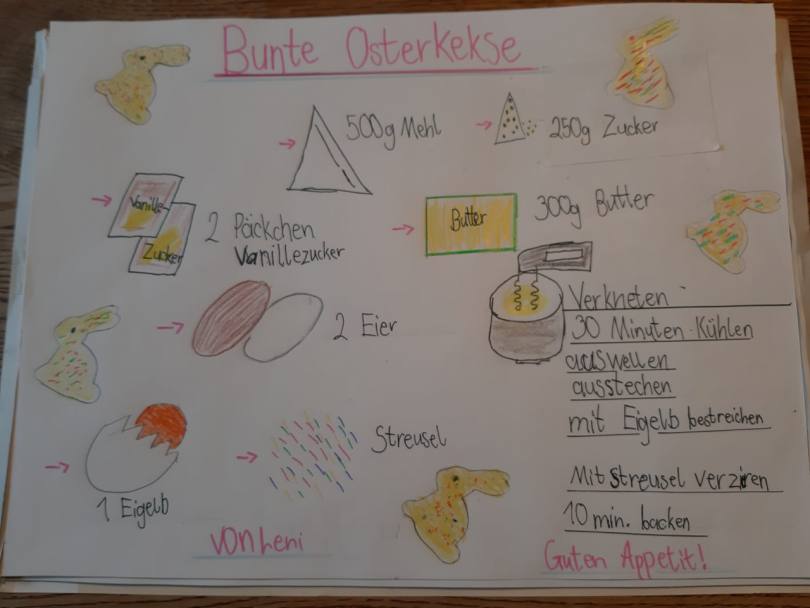 Bunte Osterkekse
500g Mehl
250g Zucker
Vanille
Zucker
2 Päckchen
Vanillezucker
Butter
300g Butter
2 Eier
1 Eigelb
Streusel
Verkneten
30 Minuten Kühlen
auswellen
ausstechen
mit Eigelb bestreichen
Mit Streusel verziren
10 min. backen
von Leni
Guten Appetit!